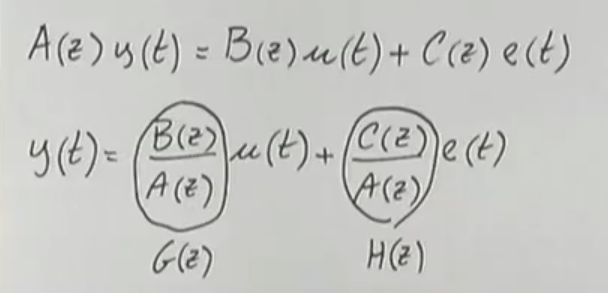 A(z) y(t) = B(z) u(t) + C(z) e(t)
y(t) = B(z)/A(z) u(t) + C(z)/A(z) e(t)
G(z) H(z)